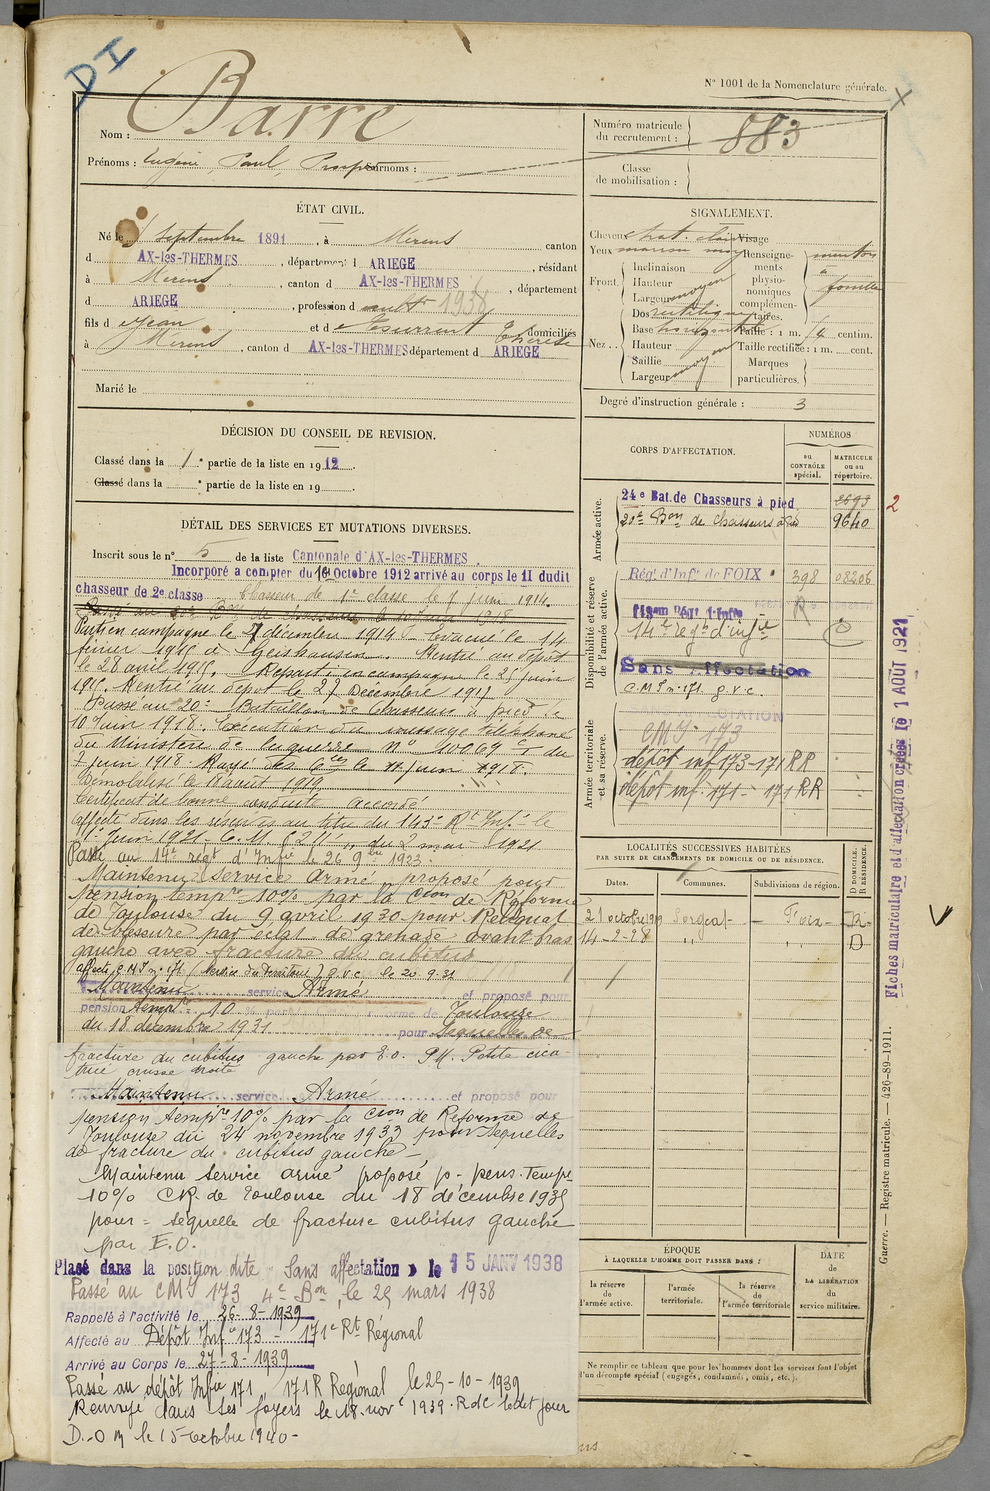 DI
N° 1001 de la Nomenclature générale.
Nom : Barre
Prénoms : Eugène, Paul, Prosper Surnoms :
Numéro matricule du recrutement : 883
Classe de mobilisation :
ÉTAT CIVIL.
Né le septembre 1891, à Mérens canton
d AX-les-THERMES, département d ARIEGE, résidant
à Mérens, canton d AX-les-THERMES, département
d ARIEGE, profession d 1938
fils d Jean et d domiciliés
à Mérens, canton d AX-les-THERMES département d ARIEGE
Marié le
SIGNALEMENT.
Cheveux chat. clair Visage
Yeux marron
Front. Inclinaison
Hauteur
Largeur moyen
Nez. Dos rectiligne
Base horizontale
Hauteur
Saillie
Largeur moyen
Renseignements physionomiques complémentaires.
menton à
Taille : 1 m. centim.
Taille rectifiée : 1 m. cent.
Marques particulières.
Degré d'instruction générale : 3
DÉCISION DU CONSEIL DE REVISION.
Classé dans la 1e partie de la liste en 1912.
Classé dans la e partie de la liste en 19
DÉTAIL DES SERVICES ET MUTATIONS DIVERSES.
Inscrit sous le n° 5 de la liste Cantonale d'AX-les-THERMES
Incorporé a compter du Octobre 1912 arrivé au corps le 11 dudit
chasseur de 2e classe chasseur de 1re classe le 1 juin 1914.
Parti en campagne le 7 décembre 1914 - Evacué le 14
février 1915 à Geishausen. Rentré au dépôt
le 28 avril 1915. Reparti en campagne le 25 juin
1915. Rentré au dépôt le 27 Décembre 1917
Passé au 20e Bataillon de Chasseurs à pied le
10 Juin 1918. Exécution du message téléphoné
du Ministère de la guerre n° du
7 juin 1918. Rayé des le juin 1918.
Démobilisé le août 1919
Certificat de bonne conduite accordé
affecté dans les réserves au titre du 143e Rt Infie le
1er Juin 1921. du 2 mai 1921
Passé au 14e régt d'Infie le 26 9bre 1923.
Maintenu service armé proposé pour
pension tempre 10% par la Cion de Réforme
de Toulouse du 9 avril 1930 pour Reliquat
de blessure par éclat de grenade avant bras
gauche avec fracture du cubitus
affecté C.M.I n° 171 (Service du Territoire) g.v.c. le 20-9-31
Maintenu service Armé et proposé pour
pension tempre 10 % Toulouse
du 18 décembre 1931 pour Sequelles de
fracture du cubitus gauche par E.O. PM. Petite cica-
trice cuisse droite
Maintenu service Armé et proposé pour
pension tempre 10% par la Cion de Réforme de
Toulouse du 24 novembre 1933 pour séquelles
de fracture du cubitus gauche
Maintenu service armé proposé p. pens. Tempre
10% CR. de Toulouse du 18 décembre 1935
pour = séquelle de fracture cubitus gauche
par E.O.
Placé dans la position dite Sans affectation le 15 JANV 1938
Passé au CMI 173 4e Bon, le 25 mars 1938
Rappelé à l'activité le 26-8-1939
Affecté au Dépôt Infie 173 - 171e Rt Régional
Arrivé au Corps le 27-8-1939
Passé au dépôt Infie 171, 171 R Régional le 25-10-1939
Renvoyé dans ses foyers le 18 novre 1939. RdC ledit jour
D.O M le 15 Octobre 1940-
CORPS D'AFFECTATION.
NUMÉROS
au CONTRÔLE spécial.
MATRICULE ou au répertoire.
Armée active.
24e Bat. de Chasseurs à pied 2693
20e Bon de Chasseurs à pied 9640
Disponibilité et réserve de l'armée active.
Rég. d'Infie de FOIX 398 08206
14e régt d'infie
Sans Affectation
C.M.I n° 171 g.v.c.
Armée territoriale et sa réserve.
CMI 173
dépôt inf 173-171 RR
dépôt inf. 171 - 171 RR
LOCALITÉS SUCCESSIVES HABITÉES
PAR SUITE DE CHANGEMENTS DE DOMICILE OU DE RÉSIDENCE.
Dates. Communes. Subdivisions de région. D DOMICILE. R RÉSIDENCE.
21 octobre 1919 - Foix - R
14-2-28 " " D
ÉPOQUE
À LAQUELLE L'HOMME DOIT PASSER DANS :
la réserve de l'armée active.
l'armée territoriale.
la réserve de l'armée territoriale
DATE de LA LIBÉRATION du service militaire.
Ne remplir ce tableau que pour les hommes dont les services font l'objet
d'un décompte spécial (engagés, condamnés, omis, etc.).
2
Fiches matriculaire et d'affectation créées le 1 AOUT 1921
Guerre. — Registre matricule. — 426-89-1911.